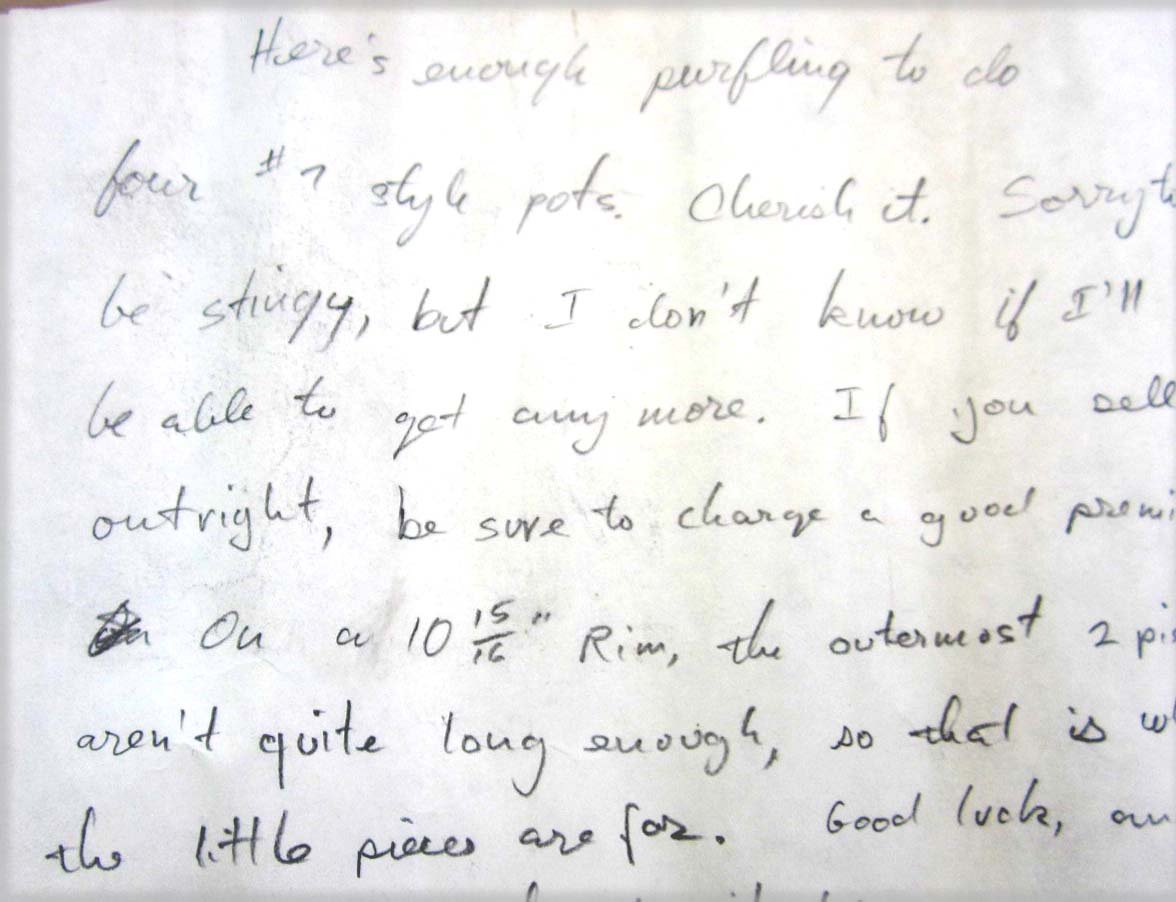 Here's enough purfling to do
four #7 style pots. Cherish it. Sorry t
be stingy, but I don't know if I'll
be able to get any more. If you sell
outright, be sure to charge a good premi
On a 10 15/16" Rim, the outermost 2 pi
aren't quite long enough, so that is w
the little pieces are for. Good luck, an